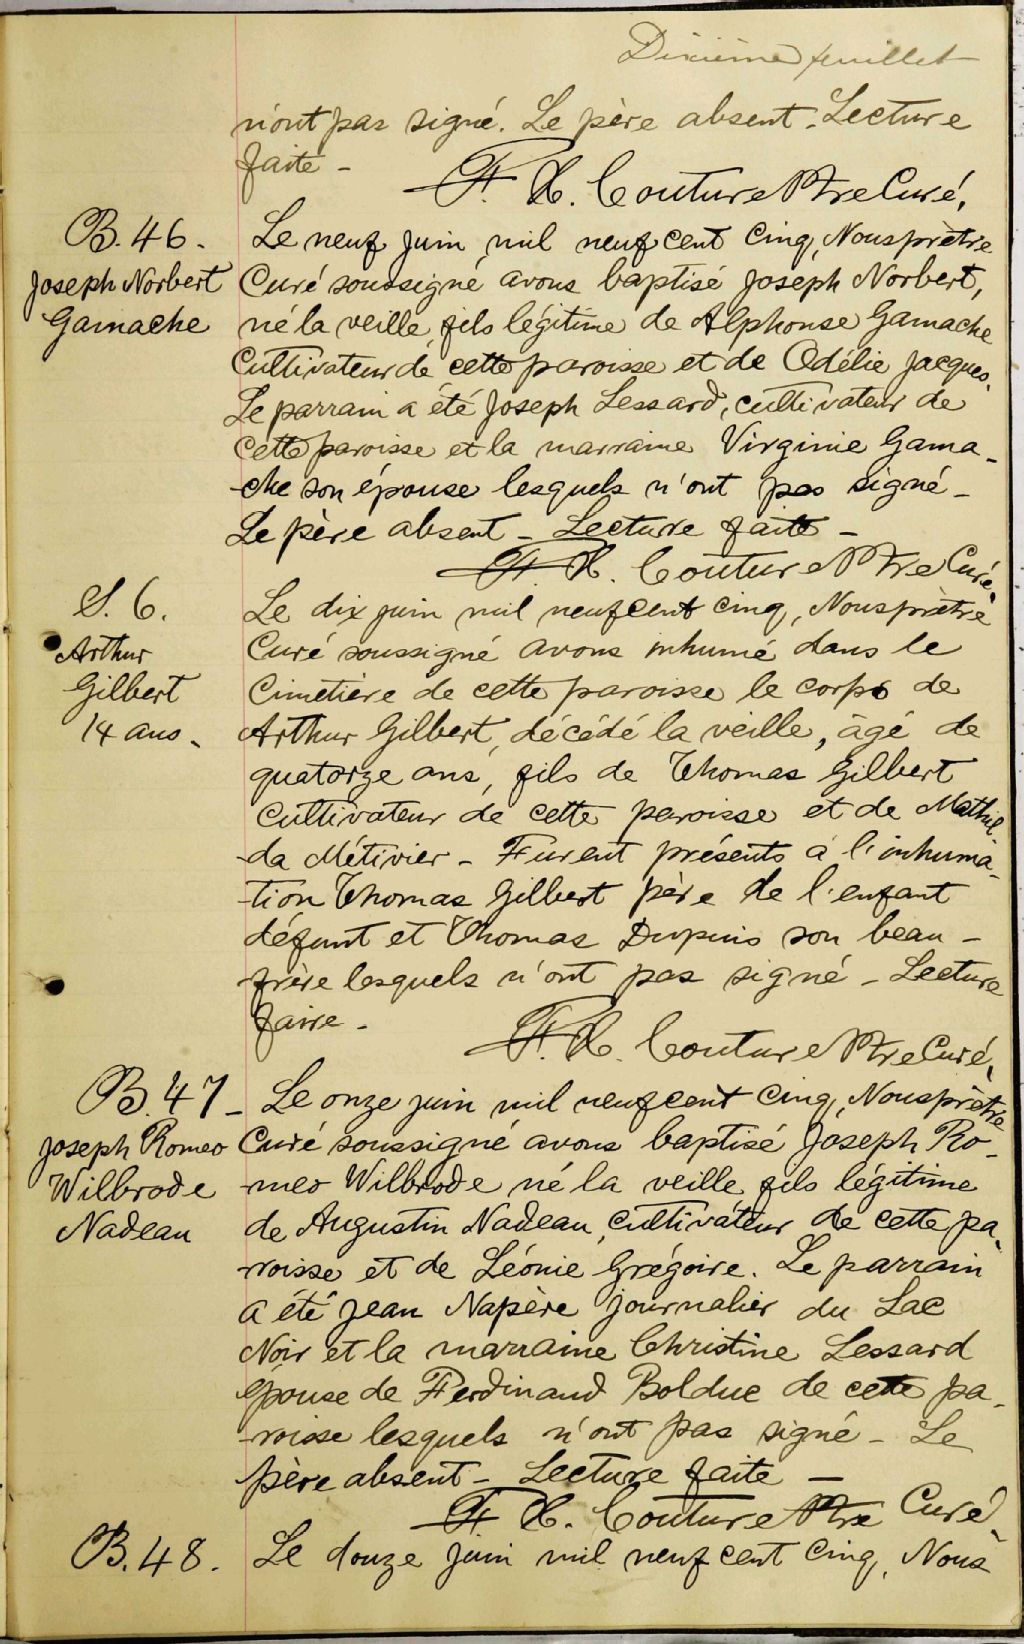 Dixième feuillet
n'ont pas signé. Le père absent. Lecture
faite -
F. X. Couture Ptre Curé,
B. 46.
Joseph Norbert
Gamache
Le neuf juin mil neuf cent cinq, Nous prêtre
Curé soussigné avons baptisé Joseph Norbert,
né la veille, fils légitime de Alphonse Gamache
Cultivateur de cette paroisse et de Odélie Jacques.
Le parrain a été Joseph Lessard, cultivateur de
cette paroisse et la marraine Virginie Gama-
-che son épouse lesquels n'ont pas signé -
Le père absent - Lecture faite -
F. X. Couture Ptre Curé.
S. 6.
Arthur
Gilbert
14 ans -
Le dix juin mil neuf cent cinq, Nous prêtre
Curé soussigné avons inhumé dans le
Cimetière de cette paroisse le corps de
Arthur Gilbert, décédé la veille, âgé de
quatorze ans, fils de Thomas Gilbert
Cultivateur de cette paroisse et de Mathil-
-da Métivier - Furent présents à l'inhuma-
-tion Thomas Gilbert père de l'enfant
défunt et Thomas Dupuis son beau -
frère lesquels n'ont pas signé - Lecture
faire -
F. X. Couture Ptre Curé,
B. 47 -
Joseph Romeo
Wilbrode
Nadeau
Le onze juin mil neuf cent cinq, Nous prêtre
Curé soussigné avons baptisé Joseph Ro-
-meo Wilbrode né la veille, fils légitime
de Augustin Nadeau, cultivateur de cette pa-
-roisse et de Léonie Grégoire. Le parrain
a été Jean Napère journalier du Lac
Noir et la marraine Christine Lessard
épouse de Ferdinand Bolduc de cette pa-
-roisse lesquels n'ont pas signé - Le
père absent - Lecture faite -
F. X. Couture Ptre Curé
B. 48.
Le douze juin mil neuf cent cinq, Nous